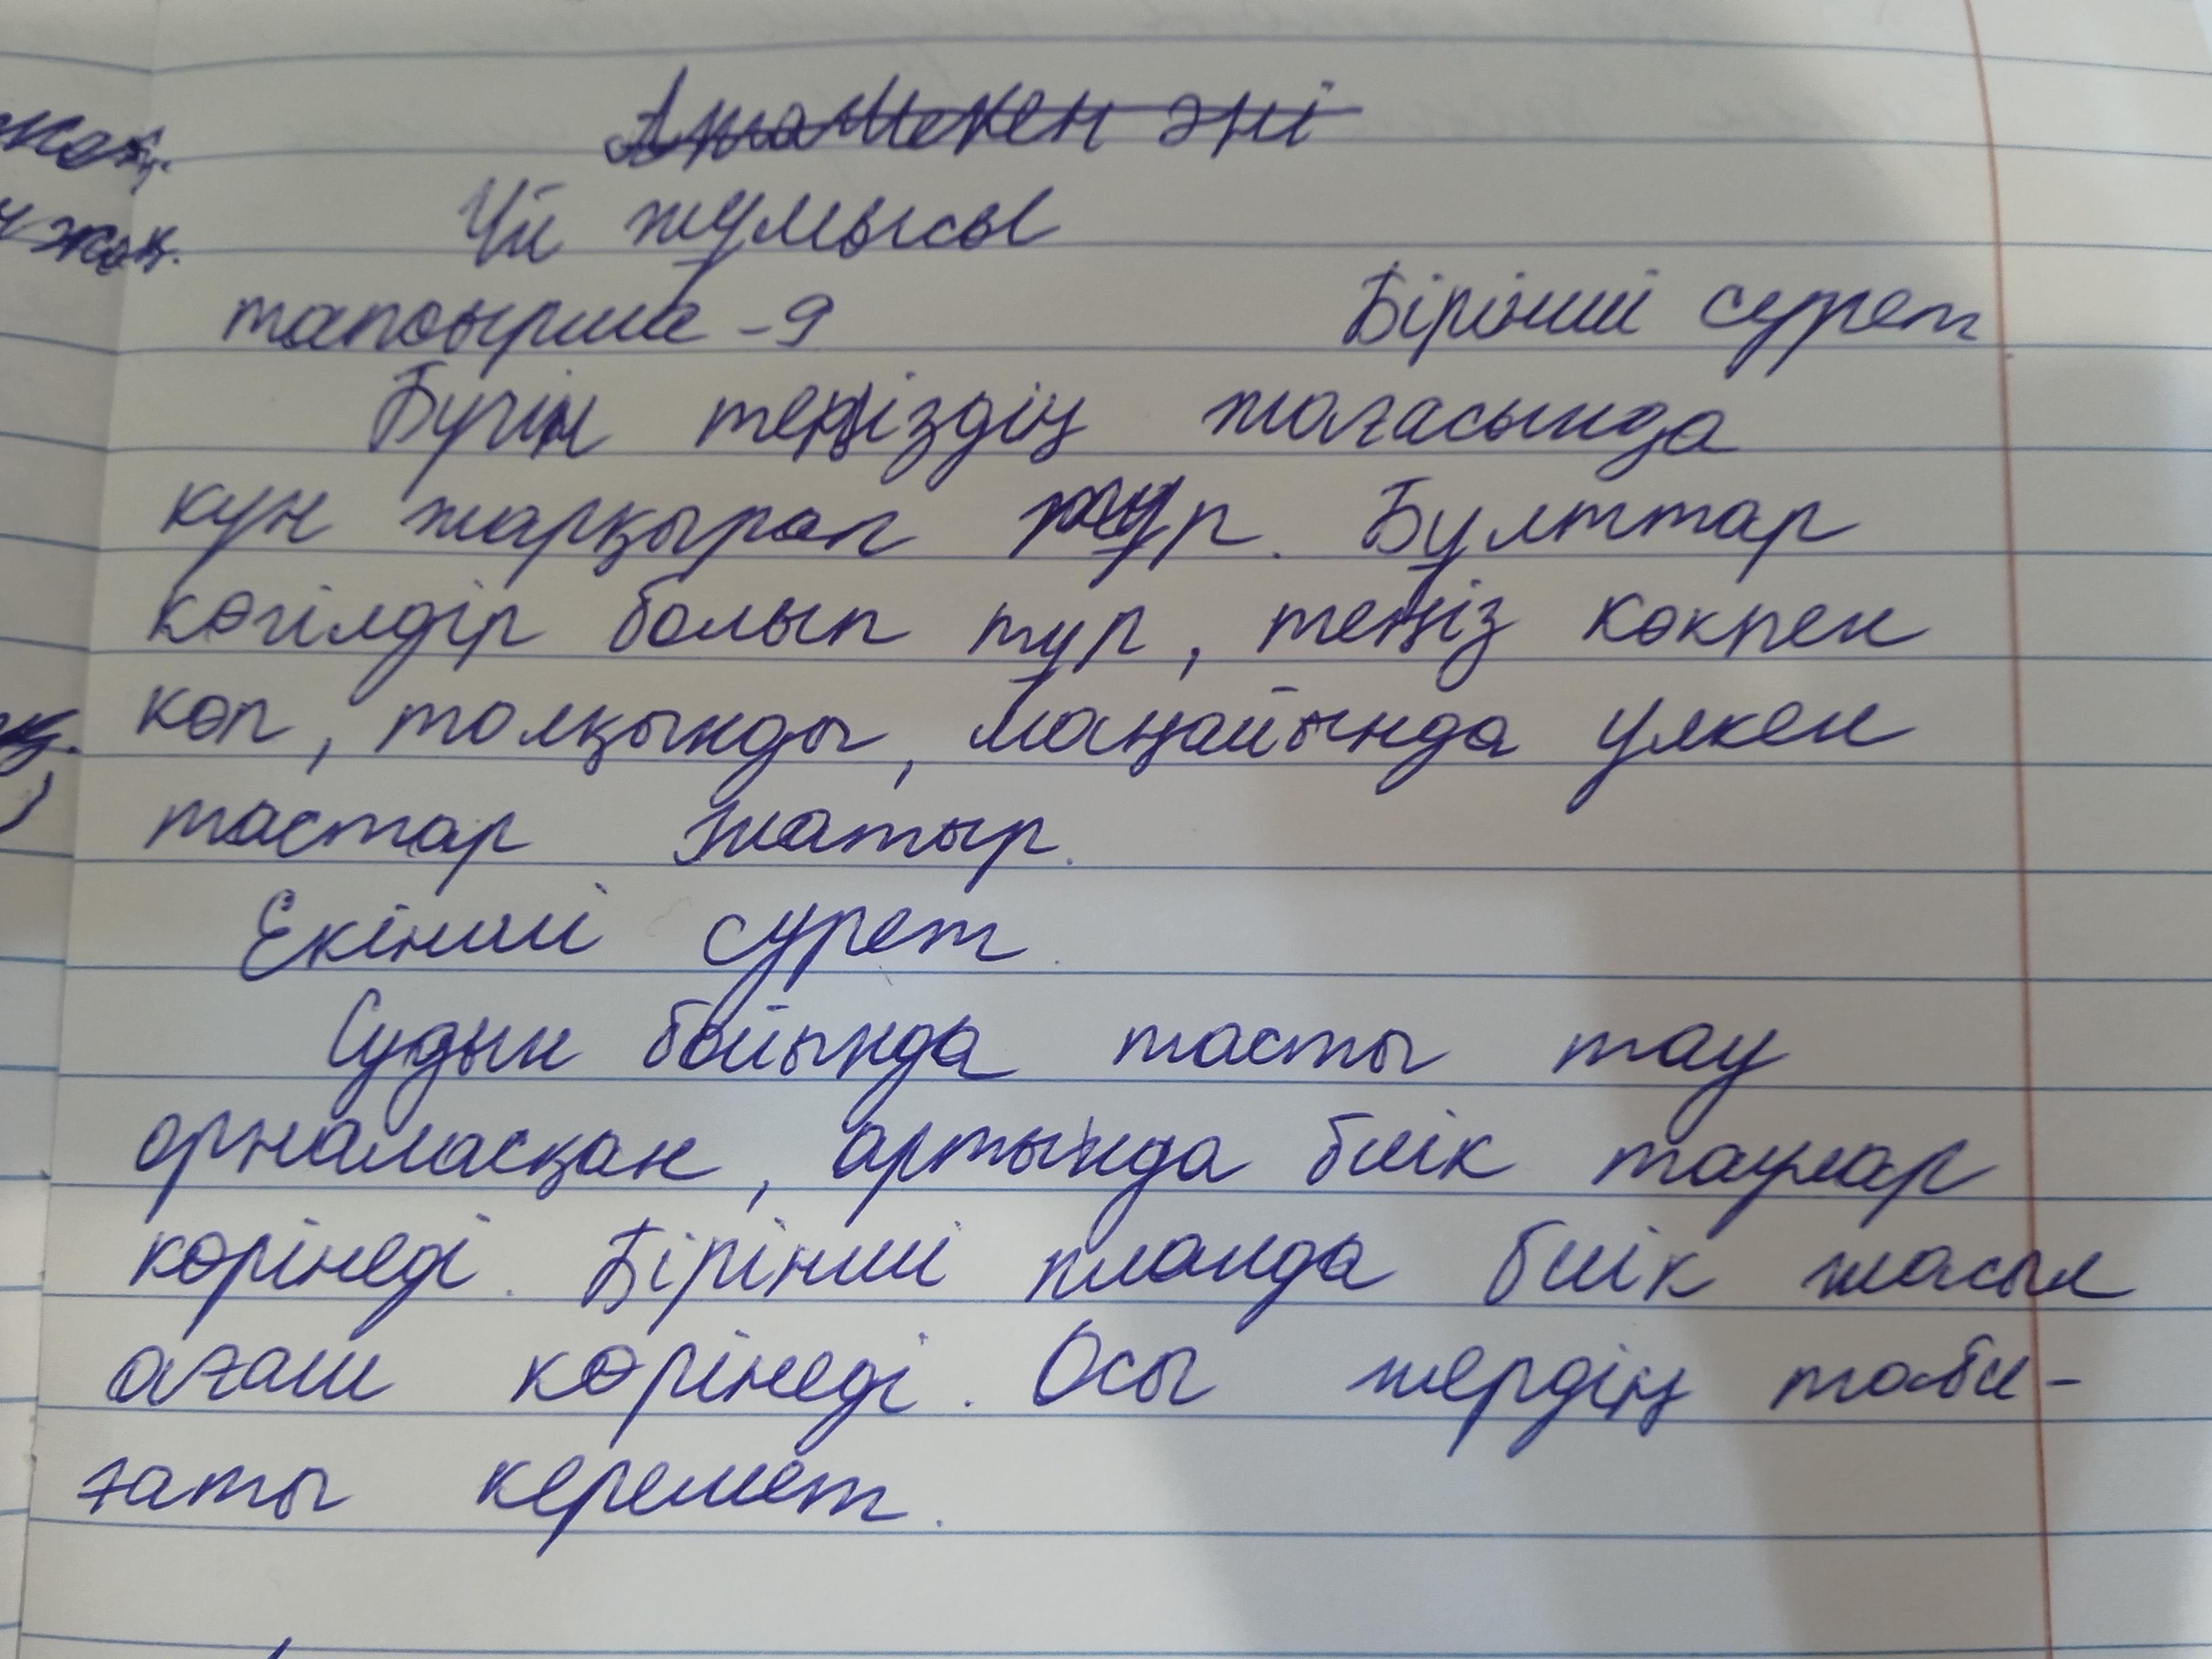 Атамекен әні
Үй жұмысы
тапсырма -9 Бірінші сурет
Бүгін теңіздің жағасында
күн жарқырап тұр. Бұлттар
көгілдір болып тұр, теңіз көкпен
көп, толқынды, маңайында үлкен
тастар жатыр.
Екінші сурет.
Судын бойында тасты тау
орналасқан, артында биік таулар
көрінеді. Бірінші планда биік жасыл
ағаш көрінеді. Осы жердің таби-
ғаты керемет.